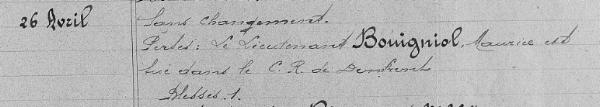 26 Avril Sans changement.
Pertes: Le Lieutenant Bouigniol, Maurice est
tué dans le C. R. de
Blessés. 1.